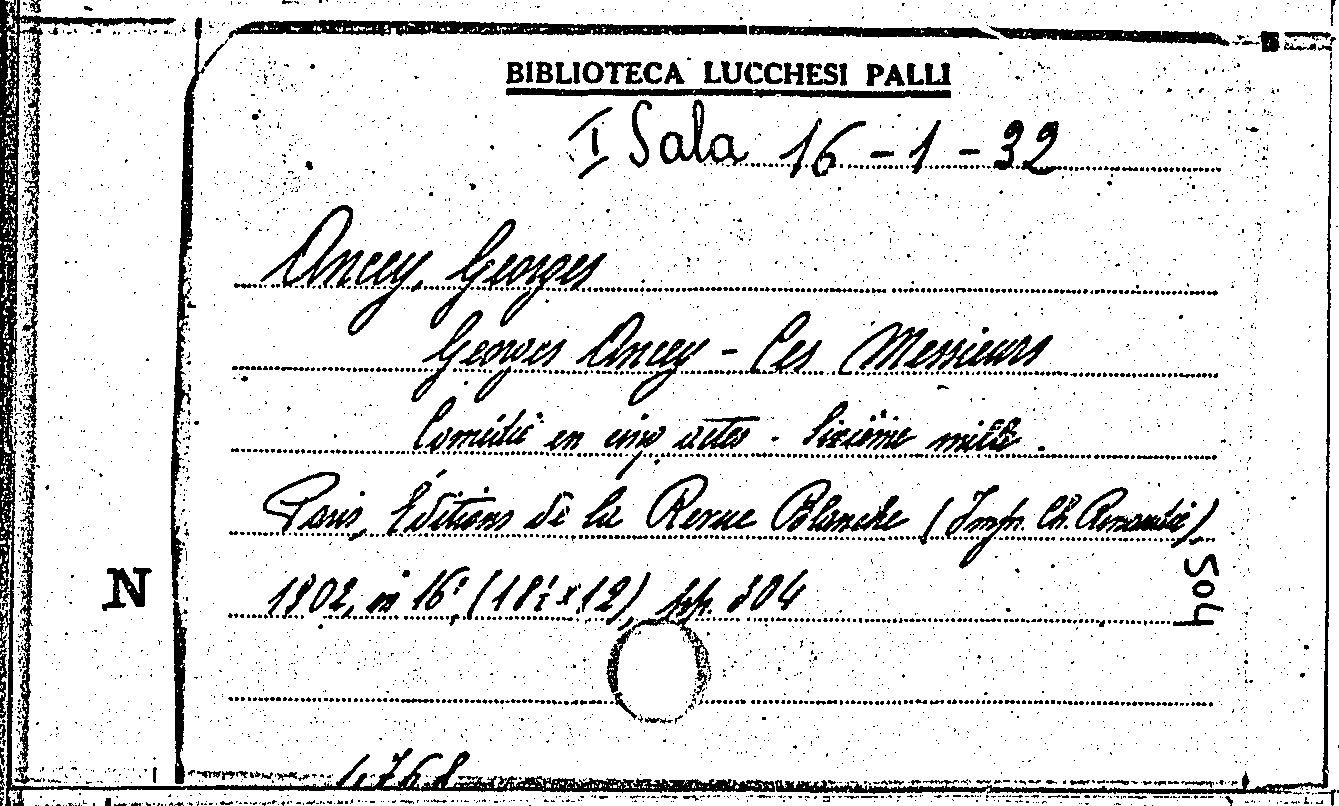 BIBLIOTECA LUCCHESI PALLI
I Sala 16-1-32
Ancey, Georges
Georges Ancey - Ces Messieurs
Comédie en cinq actes. Sixième mille.
Paris, Éditions de la Revue Blanche (Impr. Ch.
1902, in 16° (18 x 12), pp. 304
N
504
1768